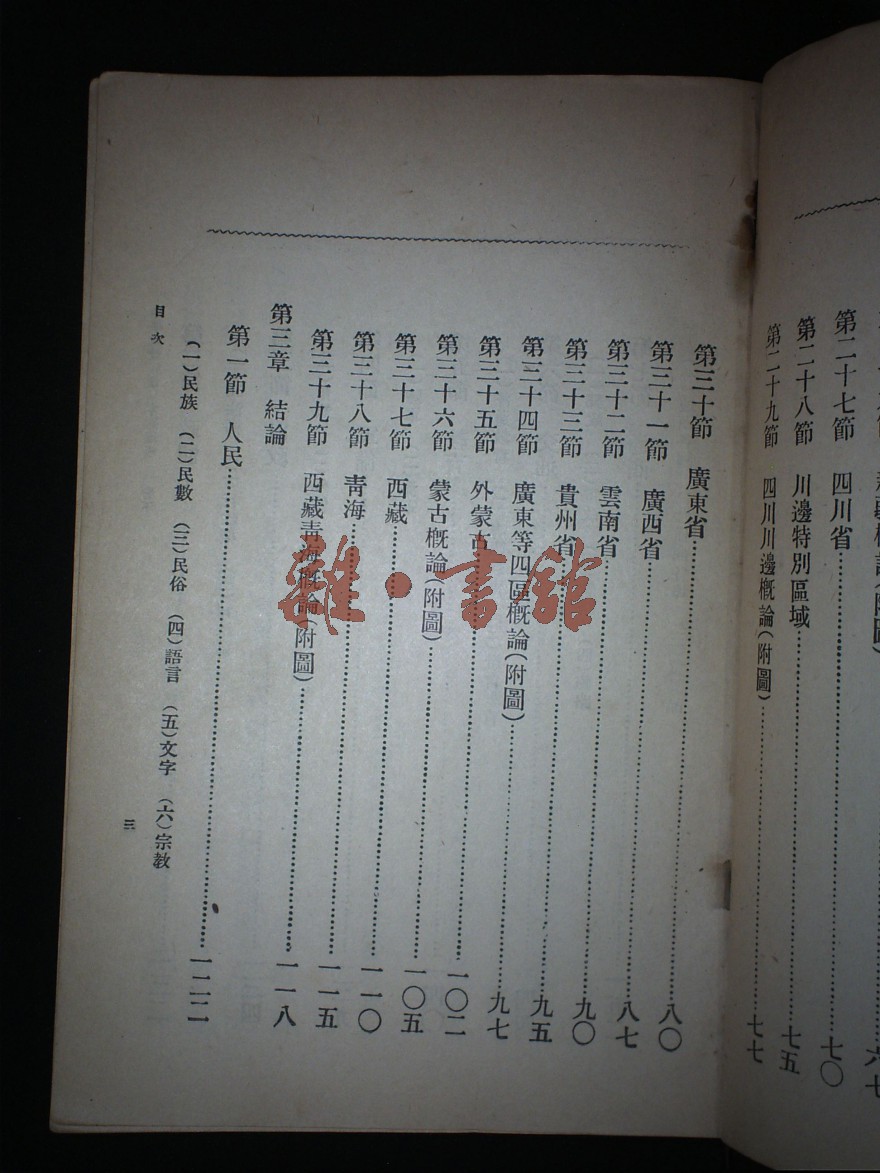 概論(附圖)……六七
第二十七節 四川省……七〇
第二十八節 川邊特別區域……七五
第二十九節 四川川邊概論(附圖)……七七
第三十節 廣東省……八〇
第三十一節 廣西省……八七
第三十二節 雲南省……九〇
第三十三節 貴州省……九五
第三十四節 廣東等四區概論(附圖)……九七
第三十五節 外蒙古……一〇二
第三十六節 蒙古概論(附圖)……一〇五
第三十七節 西藏……一一〇
第三十八節 青海……一一五
第三十九節 西藏青海概論(附圖)……一一八
第三章 結論
第一節 人民……一二一
(一)民族 (二)民數 (三)民俗 (四)語言 (五)文字 (六)宗教
目次
三
雜·書館